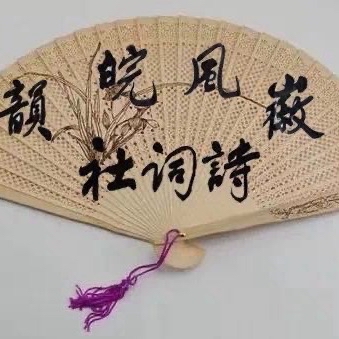 徽風皖韻
詩词社